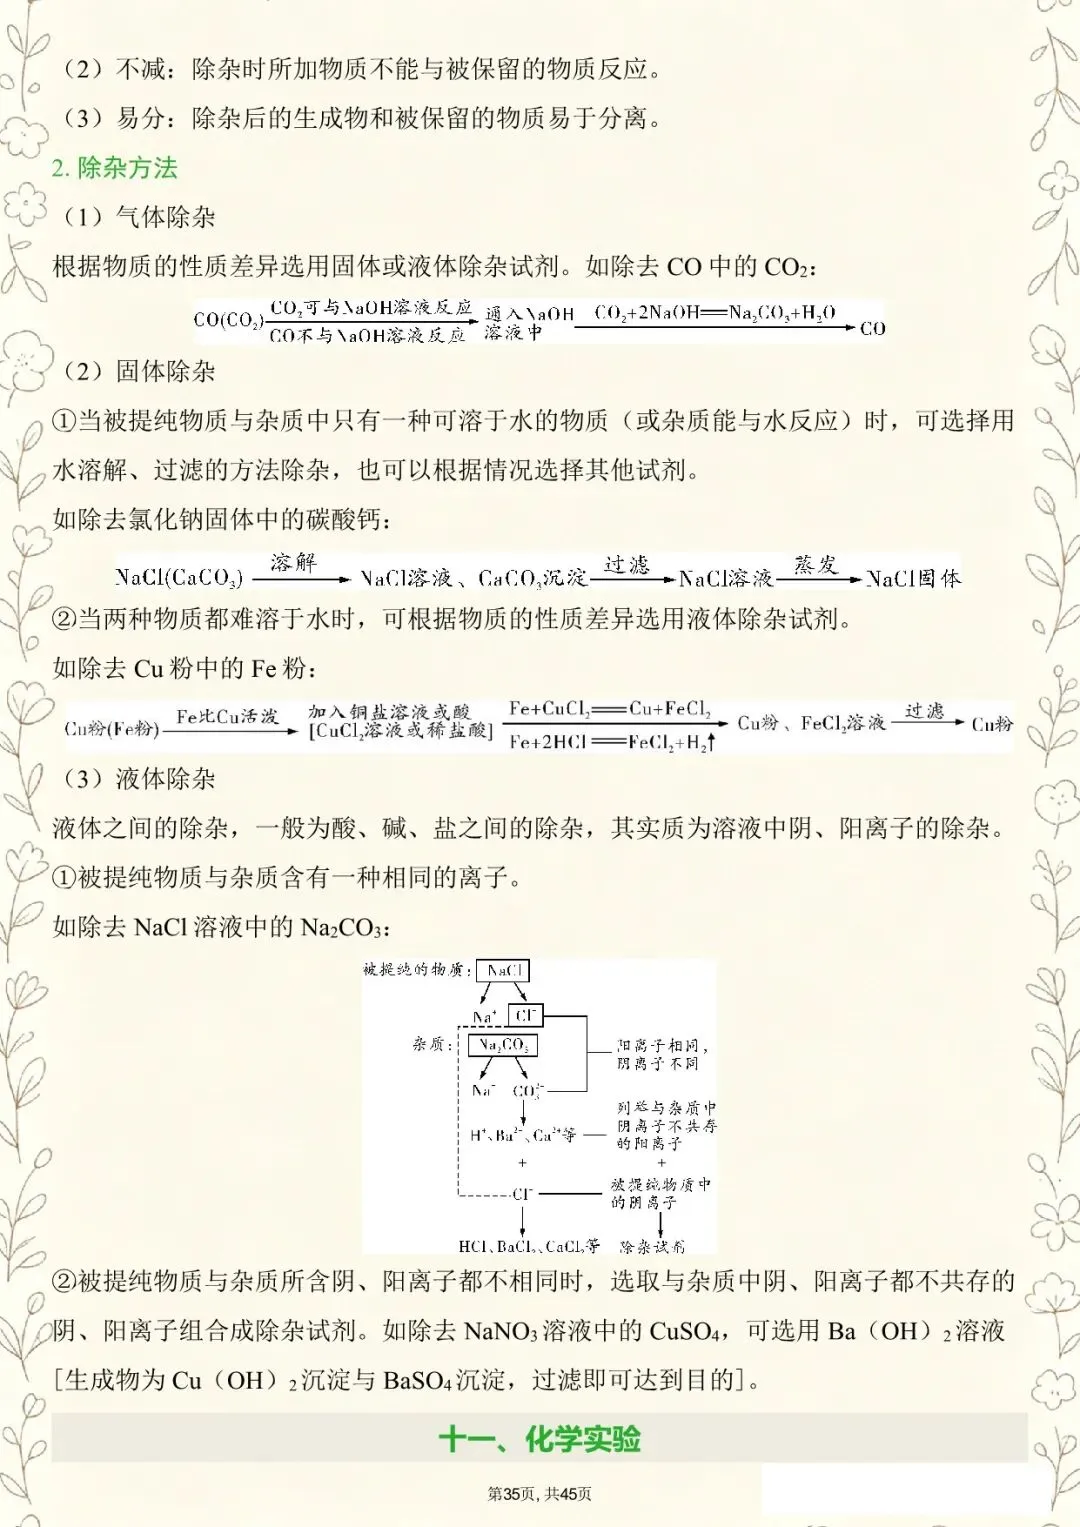 （2）不减：除杂时所加物质不能与被保留的物质反应。
（3）易分：除杂后的生成物和被保留的物质易于分离。
2. 除杂方法
（1）气体除杂
根据物质的性质差异选用固体或液体除杂试剂。如除去 CO 中的 CO₂：
CO(CO₂) CO₂可与NaOH溶液反应 CO不与NaOH溶液反应 通入NaOH溶液中 CO₂+2NaOH══Na₂CO₃+H₂O CO
（2）固体除杂
①当被提纯物质与杂质中只有一种可溶于水的物质（或杂质能与水反应）时，可选择用
水溶解、过滤的方法除杂，也可以根据情况选择其他试剂。
如除去氯化钠固体中的碳酸钙：
NaCl(CaCO₃) 溶解 NaCl溶液、CaCO₃沉淀 过滤 NaCl溶液 蒸发 NaCl固体
②当两种物质都难溶于水时，可根据物质的性质差异选用液体除杂试剂。
如除去 Cu 粉中的 Fe 粉：
Cu粉(Fe粉) Fe比Cu活泼 加入铜盐溶液或酸[CuCl₂溶液或稀盐酸] Fe+CuCl₂══Cu+FeCl₂ Fe+2HCl══FeCl₂+H₂↑ Cu粉、FeCl₂溶液 过滤 Cu粉
（3）液体除杂
液体之间的除杂，一般为酸、碱、盐之间的除杂，其实质为溶液中阴、阳离子的除杂。
①被提纯物质与杂质含有一种相同的离子。
如除去 NaCl 溶液中的 Na₂CO₃：
被提纯的物质：NaCl
Na⁺ Cl⁻
杂质：Na₂CO₃
阳离子相同，
阴离子不同
Na⁺ CO₃²⁻
列举与杂质中
阴离子不共存
的阳离子
H⁺、Ba²⁺、Ca²⁺等
+ +
Cl⁻ 被提纯物质中
的阴离子
HCl、BaCl₂、CaCl₂等 除杂试剂
②被提纯物质与杂质所含阴、阳离子都不相同时，选取与杂质中阴、阳离子都不共存的
阴、阳离子组合成除杂试剂。如除去 NaNO₃ 溶液中的 CuSO₄，可选用 Ba（OH）₂ 溶液
[生成物为 Cu（OH）₂ 沉淀与 BaSO₄ 沉淀，过滤即可达到目的]。
十一、化学实验
第35页, 共45页